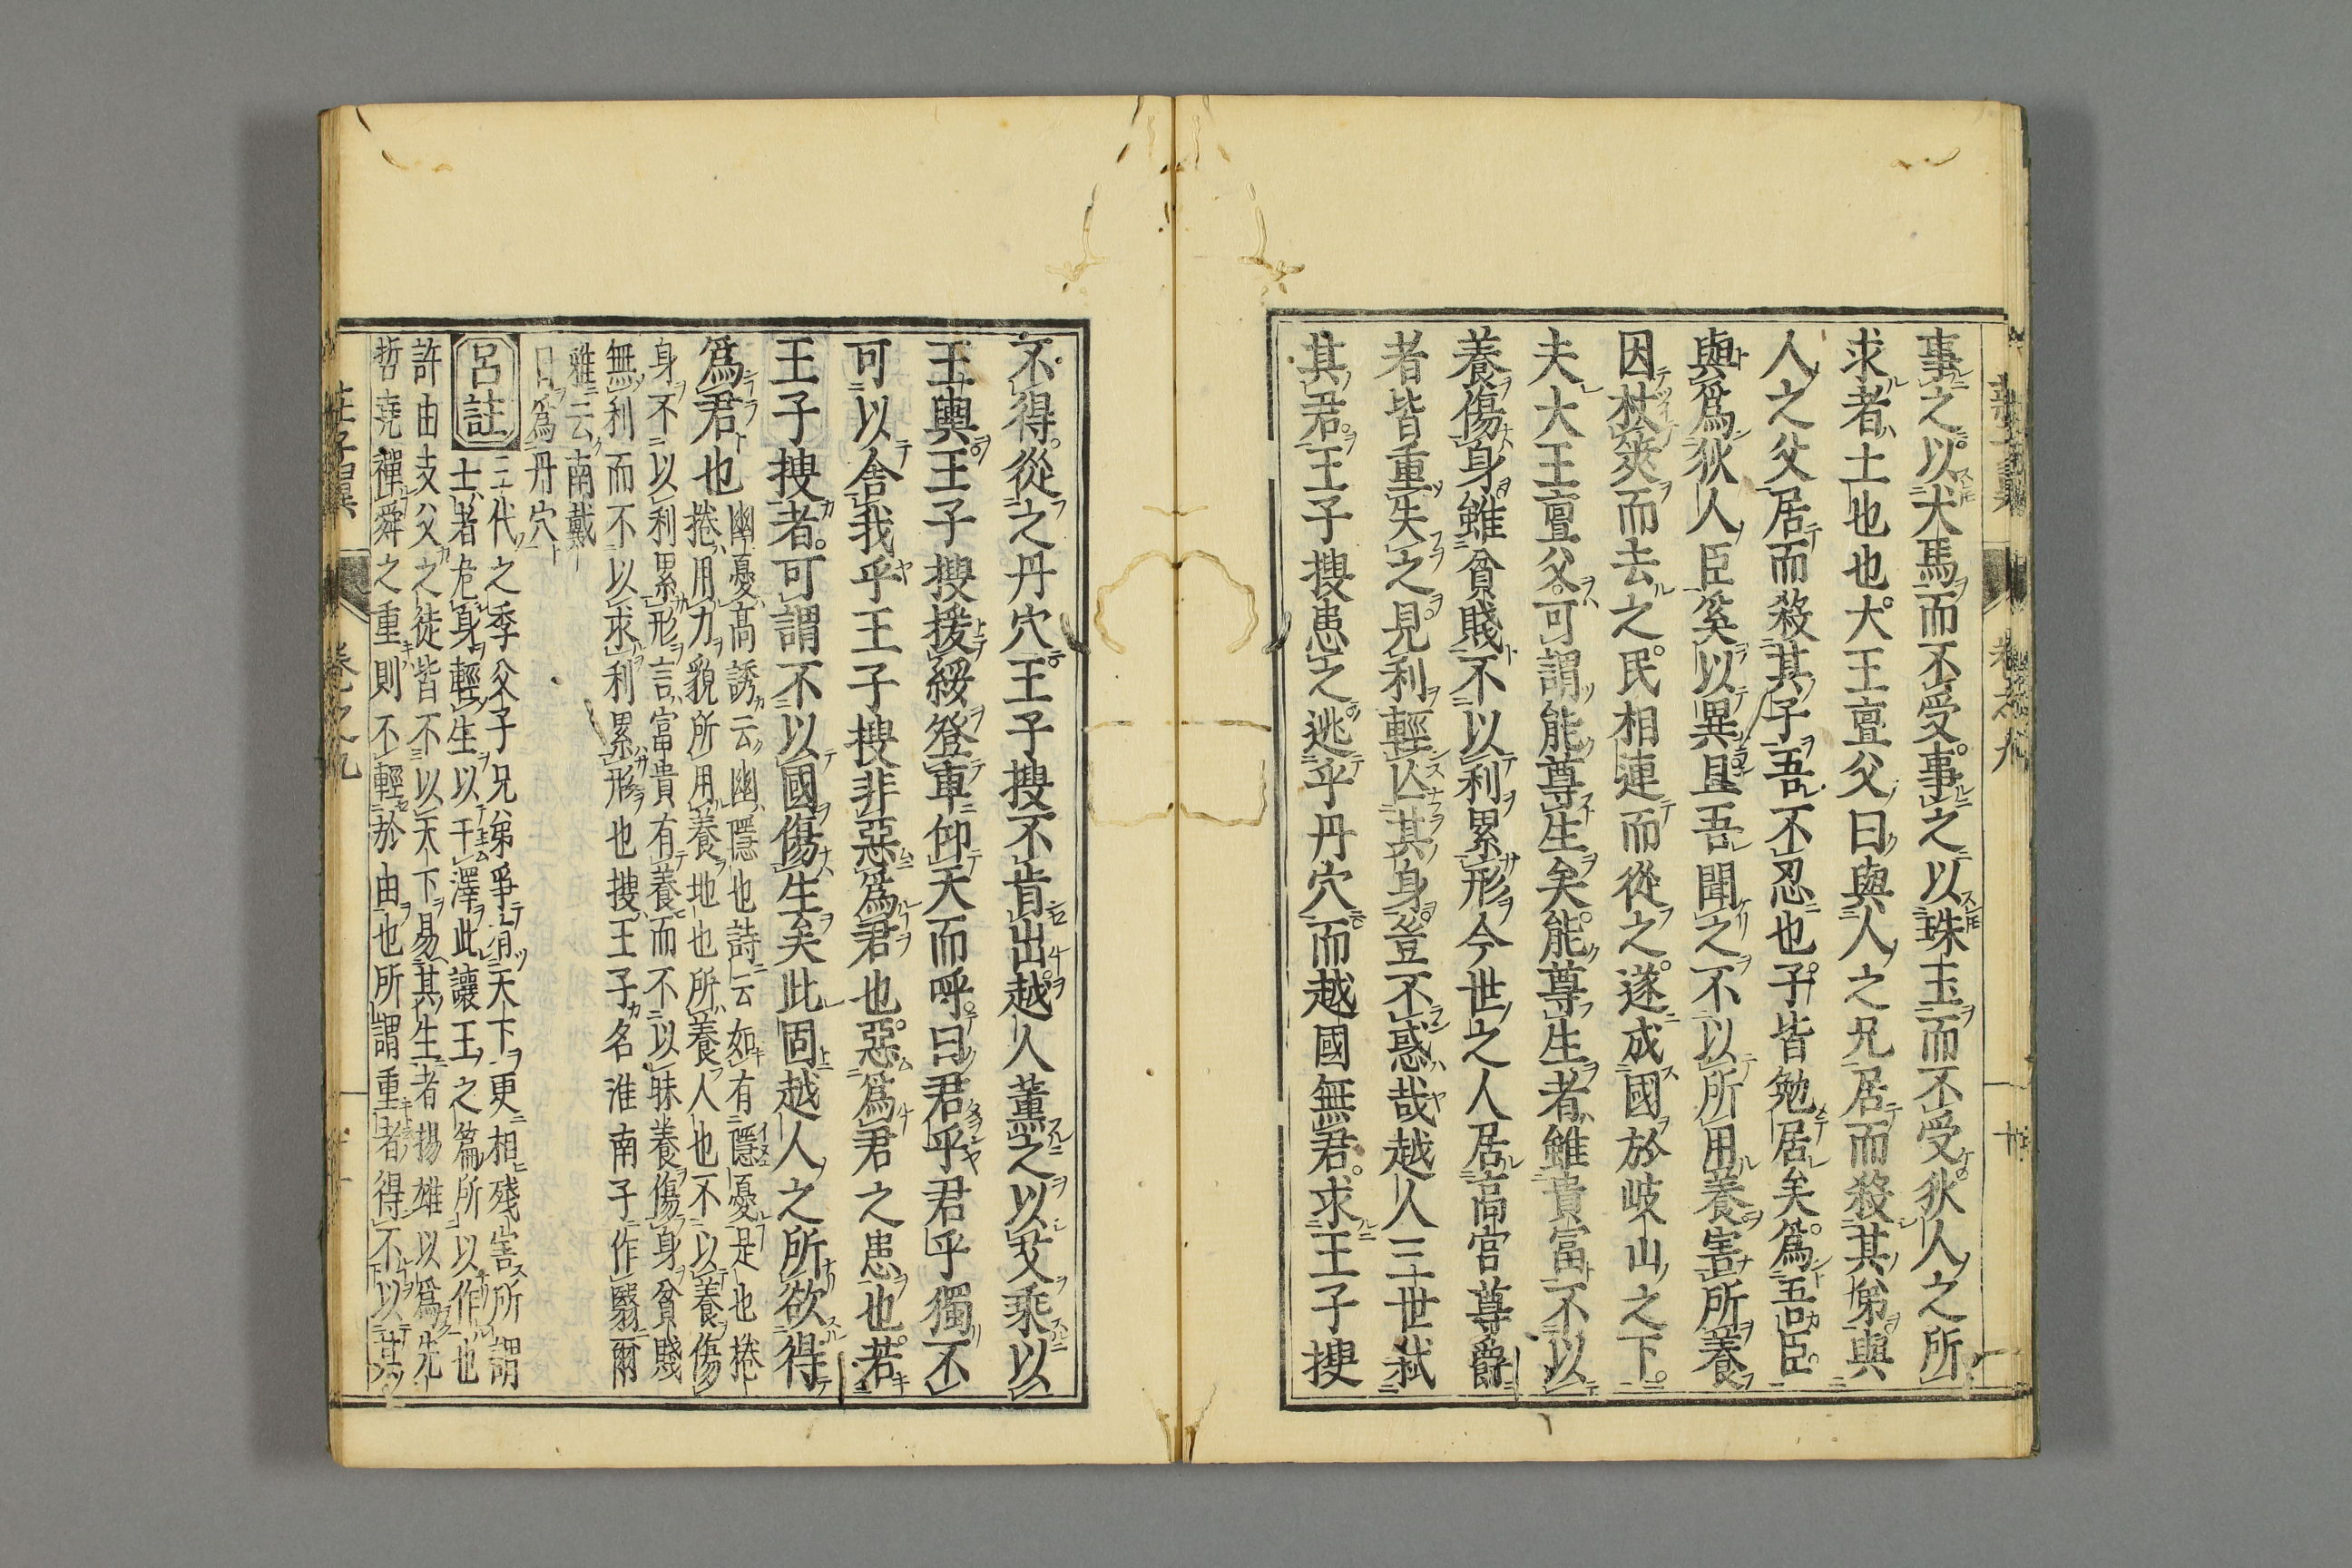 事之以犬馬而不受事之以珠玉而不受狄人之所
求者土也也大王亶父曰與人之兄居而殺其弟與
人之父居而殺其子吾不忍也子皆勉居矣爲吾臣
與爲狄人臣奚以異且吾聞之不以所用養害所養
因杖筴而去之民相連而從之遂成國於岐山之下
夫大王亶父可謂能尊生矣能尊生者雖貴富不以
養傷身雖貧賤不以利累形今世之人居高官尊爵
者皆重失之見利輕亾其身豈不惑哉越人三世弒
其君王子搜患之逃乎丹穴而越國無君求王子搜
不得從之丹穴王子搜不肯出越人薫之以艾乘以
王輿王子搜援綏登車仰天而呼曰君乎君乎獨不
可以舍我乎王子搜非惡爲君也惡爲君之患也若
王子搜者可謂不以國傷生矣此固越人之所欲得
爲君也
幽憂高誘云幽隱也詩云如有隱憂是也捲
捲用力貌所用養地也所養人也不以養傷
身不以利累形言富貴有養而不以昧養傷身貧賤
無利而不以求利累形也搜王子名淮南子作翳爾
雅云南戴
日爲丹穴
呂註
三代之季父子兄弟爭有天下更相殘害所謂
士者危身輕生以干澤此讓王之篇所以作也
許由支父之徒皆不以天下易其生者揚雄以爲先
哲堯禪舜之重則不輕於由也所謂重者得不以其
莊子翼
卷之九